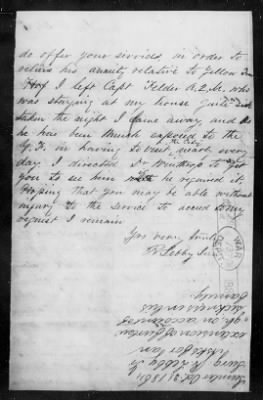 do offer your services in order to
relieve his anxiety relative to Yellow
I left Capt Felder A.Q.M. who
was staying at my house quite
taken the night I came away and as
he has been much exposed to the
Y.F. in having to visit the City every
day I directed Dr Winthrop to
you to see him he required it
Hoping that you may be able without
injury to the service to accede to my
request I remain
Yrs very truly
R Lebby Sur
Sumter Oct 31 1864
Surg R Lebby
asks for an
extension of furlow
on account of
sickness in his
family